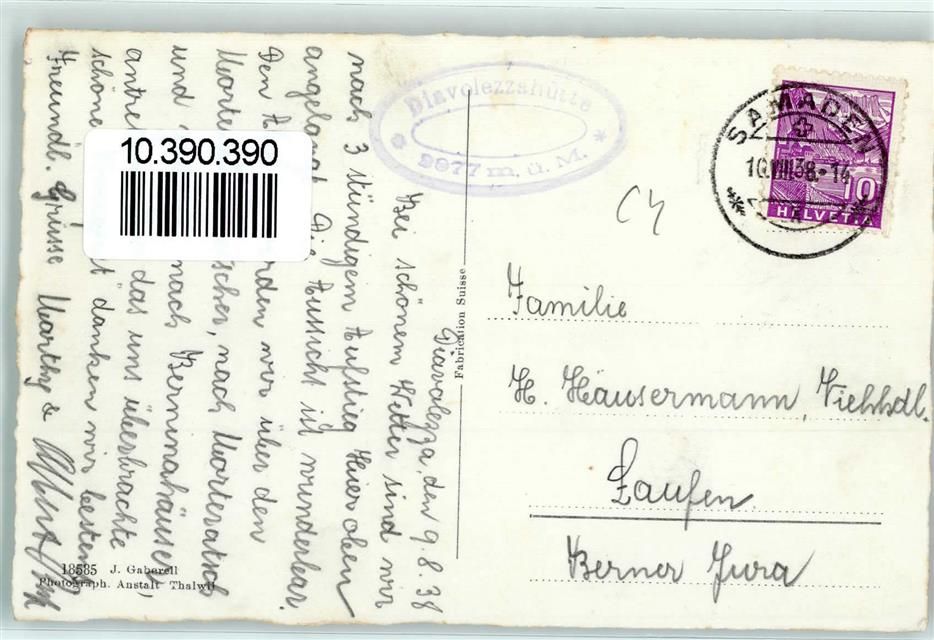 Diavolezzahütte
2977 m. ü. M.
SAMADEN
10.VIII.38-14
10
HELVETIA
10.390.390
Diavolezza, den 9.8.38
Bei schönem Wetter sind wir
nach 3 stündigem Aufstieg hier oben
angelangt. Die Aussicht ist wunderbar.
Den werden wir über den
nach Morteratsch
und nach Berninahäuser
das uns überbrachte,
schöne danken wir bestens.
Freundl. Grüsse Marthy &
Fabrication Suisse
Familie
H. Häusermann, Viehhdl.
Laufen
Berner Jura
18585 J. Gaberell
Photograph. Anstalt Thalwil